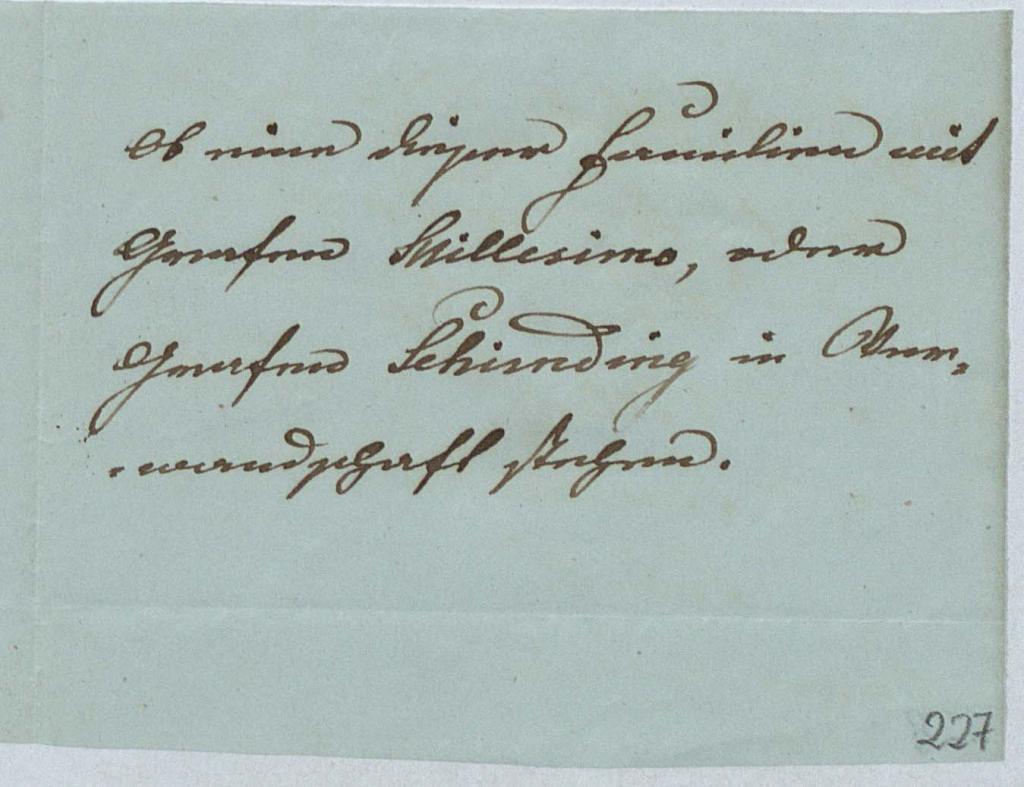 Ob eine dieser Familien mit
Grafen Millesimo, oder
Grafen Schirnding in Ver=
=wandschaft stehen.
227